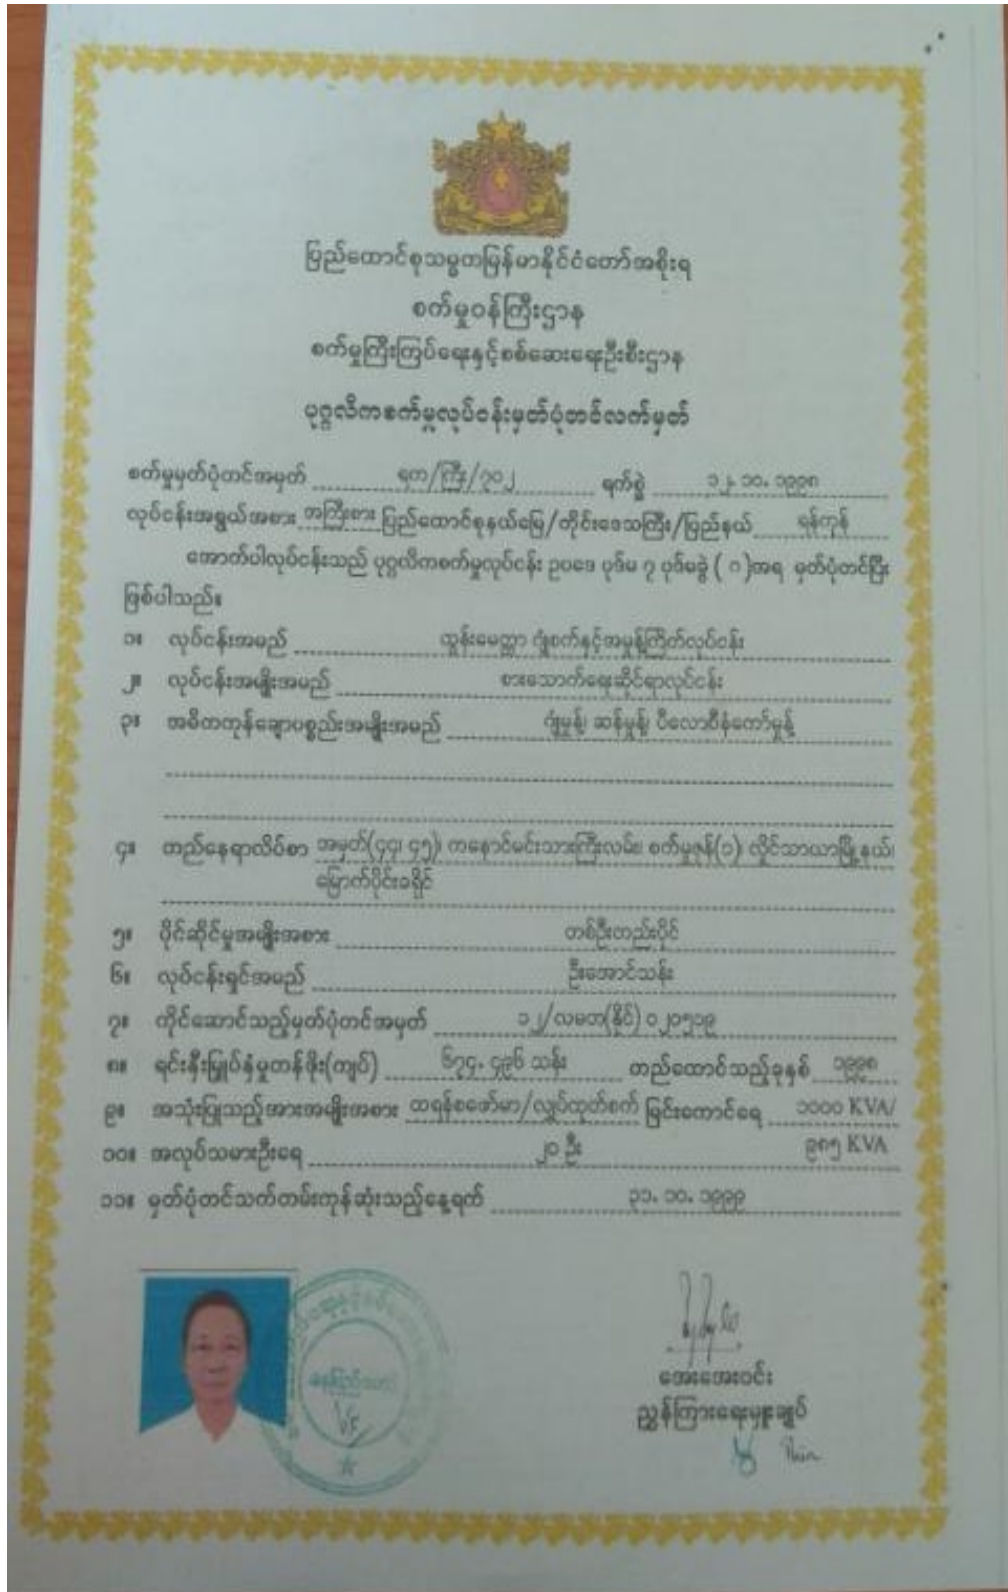 ပြည်ထောင်စုသမ္မတမြန်မာနိုင်ငံတော်အစိုးရ
စက်မှုဝန်ကြီးဌာန
စက်မှုကြီးကြပ်ရေးနှင့်စစ်ဆေးရေးဦးစီးဌာန
ပုဂ္ဂလိကစက်မှုလုပ်ငန်းမှတ်ပုံတင်လက်မှတ်
စက်မှုမှတ်ပုံတင်အမှတ် ရက/ကြီး/၇၀၂ ရက်စွဲ ၁၂.၁၀.၁၉၉၈
လုပ်ငန်းအရွယ်အစား အကြီးစား ပြည်ထောင်စုနယ်မြေ/တိုင်းဒေသကြီး/ပြည်နယ် ရန်ကုန်
အောက်ပါလုပ်ငန်းသည် ပုဂ္ဂလိကစက်မှုလုပ်ငန်း ဥပဒေ ပုဒ်မ ၇ ပုဒ်မခွဲ ( ဂ )အရ မှတ်ပုံတင်ပြီး
ဖြစ်ပါသည်။
၁။ လုပ်ငန်းအမည် ထွန်းမေတ္တာ ဂျုံစက်နှင့်အမှုန့်ကြိတ်လုပ်ငန်း
၂။ လုပ်ငန်းအမျိုးအမည် စားသောက်ရေးဆိုင်ရာလုပ်ငန်း
၃။ အဓိကကုန်ချောပစ္စည်းအမျိုးအမည် ဂျုံမှုန့်၊ ဆန်မှုန့်၊ ပီလောပီနံကော်မှုန့်
၄။ တည်နေရာလိပ်စာ အမှတ်(၄၄၊ ၄၅)၊ ကနောင်မင်းသားကြီးလမ်း၊ စက်မှုဇုန်(၁)၊ လှိုင်သာယာမြို့နယ်၊
မြောက်ပိုင်းခရိုင်
၅။ ပိုင်ဆိုင်မှုအမျိုးအစား တစ်ဦးတည်းပိုင်
၆။ လုပ်ငန်းရှင်အမည် ဦးအောင်သန်း
၇။ ကိုင်ဆောင်သည့်မှတ်ပုံတင်အမှတ် ၁၂/လမတ(နိုင်) ၀၂၀၅၁၉
၈။ ရင်းနှီးမြှုပ်နှံမှုတန်ဖိုး(ကျပ်) ၆၇၄.၄၉၆ သန်း တည်ထောင်သည့်ခုနှစ် ၁၉၉၈
၉။ အသုံးပြုသည့်အားအမျိုးအစား ထရန်စဖော်မာ/လျှပ်ထုတ်စက် မြင်းကောင်ရေ ၁၀၀၀ KVA/
၁၀။ အလုပ်သမားဦးရေ ၂၀ ဦး ၉၈၅ KVA
၁၁။ မှတ်ပုံတင်သက်တမ်းကုန်ဆုံးသည့်နေ့ရက် ၃၁.၁၀.၁၉၉၉
အေးအေးဝင်း
ညွှန်ကြားရေးမှူးချုပ်